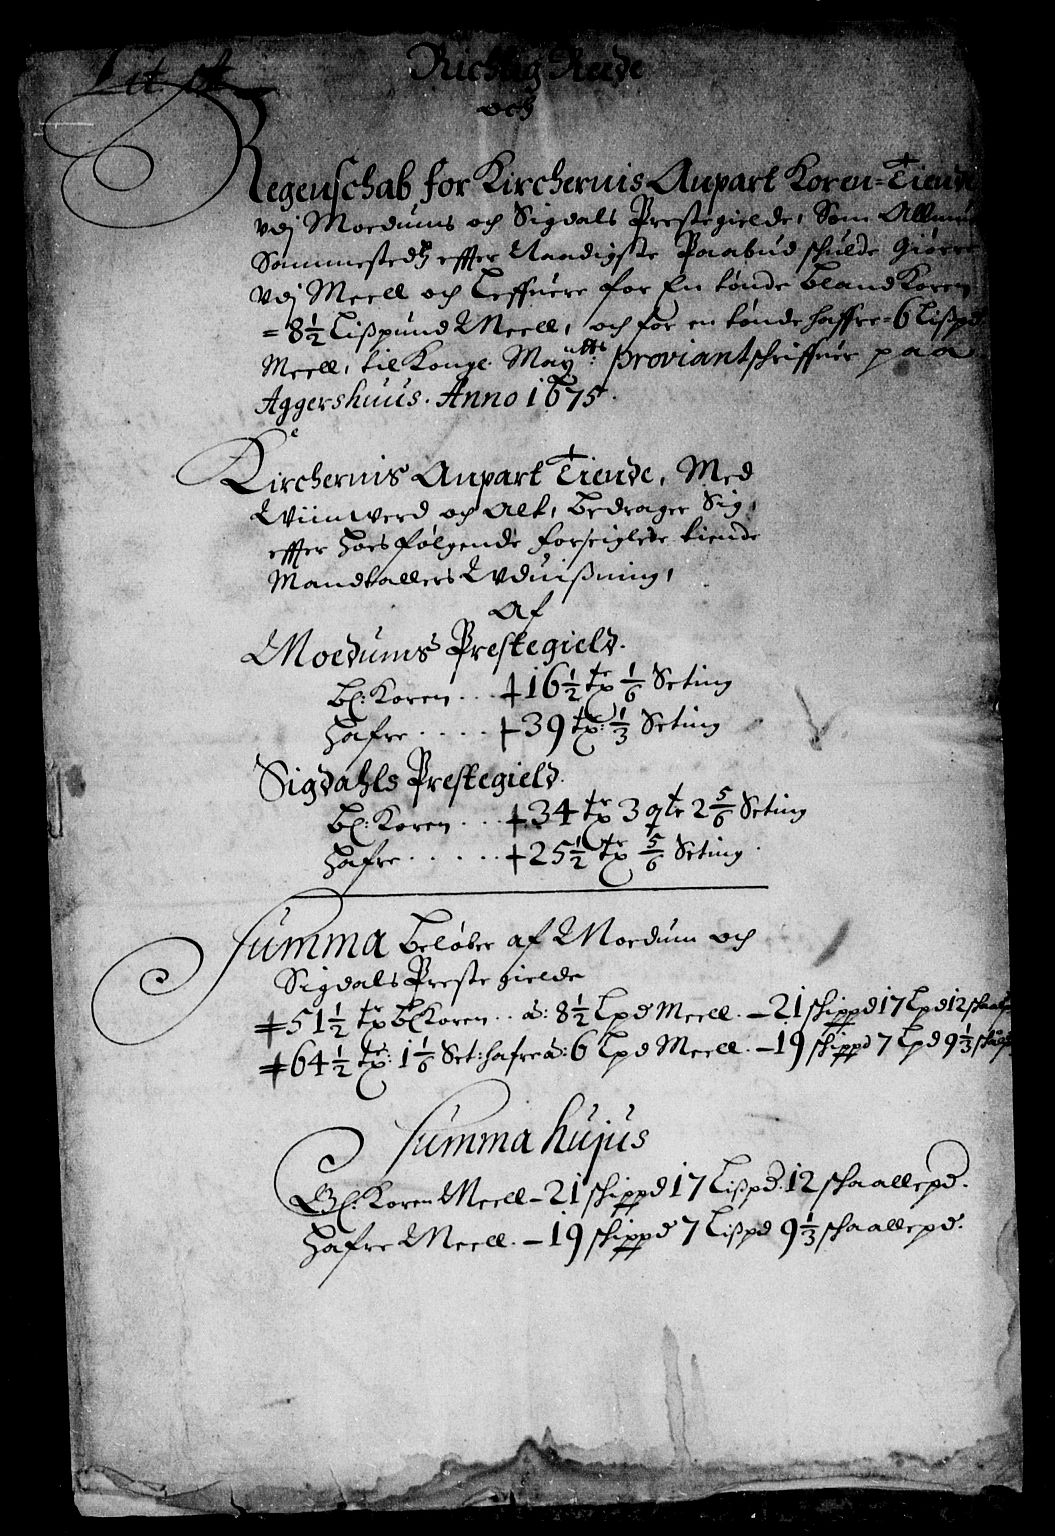 Lit. A
Richtig Rede
och
Regenschab for Kirchernis Anpart Koren=Tiende
vdj Moedums och Sigdals Prestegielde, Som Allmuen
Sammestedtz effter Naadigste Paabud schulde Giøre
vdj Meell och Leffuere for En tønde bland Koren
= 8½ Lißpund Meell, och for en tønde haffre = 6 Lißpd
Meell, til Konge. Maytts: Proviantschriffuer paa
Aggershuus. Anno 1675.
Kirchernis Anpart Tiende, Med
Wiinwerd och Alt, bedrager Sig,
effter hoes følgende forseiglede tiende
Mandtallers Vduißning,
Af
Moedums Prestegield.
bl: Koren . . . 16½ tr 1/6 Seting
hafre . . . . . 39 tr: 1/3 Seting
Sigdahls Prestegield.
bl: Koren . . . 34 tr 3 qtr 2 5/6 Seting
hafre . . . . . 25½ tr 5/6 Seting.
Summa beløber af Moedum och
Sigdals Prestegielde
51½ tr bl Koren . . á: 8½ Lpd Meell. – 21 schippd 17 Lpd 12 schaalp
64½ tr: 1 1/6 Set: hafre á: 6 Lpd Meell. – 19 schippd 7 Lpd 9 1/3 schaalp
Summa hujus
Bl: Koren Meell – 21 schippd 17 Lißpd. 12 schaallepd.
Hafre Meell. – 19 schippd 7 Lißpd 9 1/3 schaallepd.